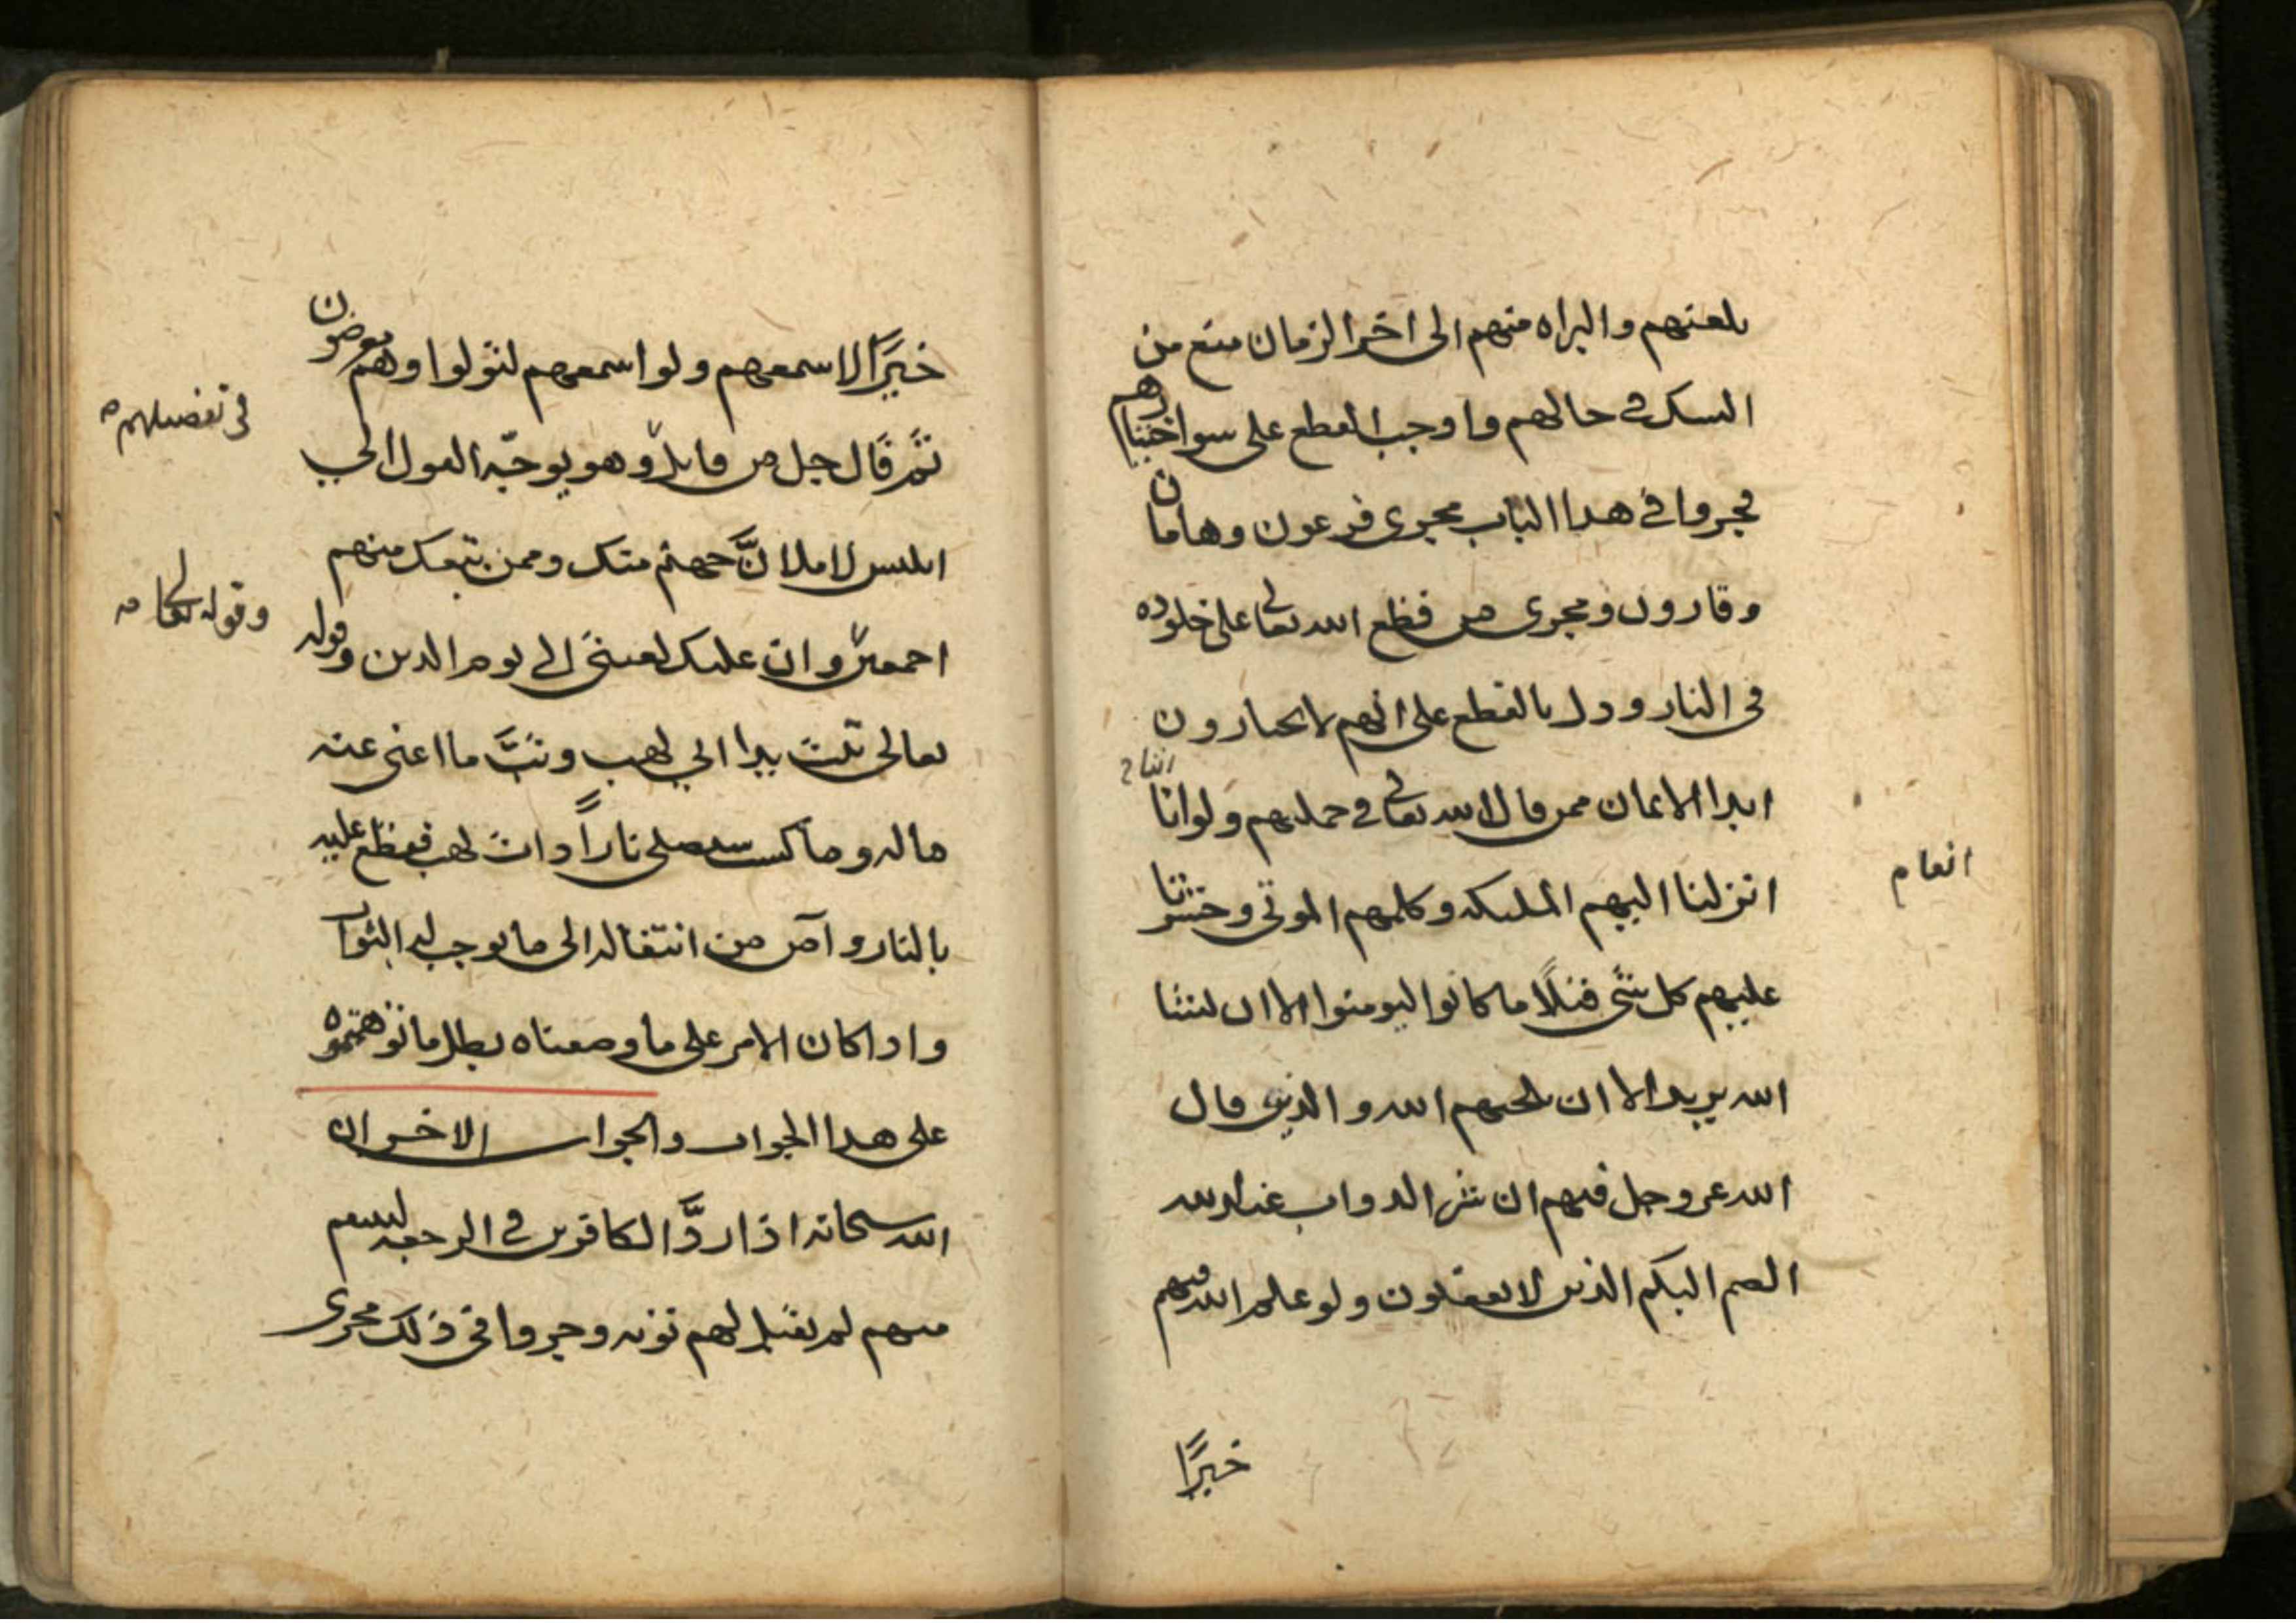 بلعنهم والبراه منهم الى اخر الزمان منع من
الشك في حالهم واوجب القطع على سوا اختيارهم
فجروا في هدا الباب مجرى فرعون وهامان
وقارون ومجرى من قطع الله تعالى على خلوده
في النار ودل بالقطع على انهم لا يختارون
ابدا الايمان ممن قال الله تعالى في جملتهم ولو اننا
اننا
انزلنا اليهم الملىكه وكلمهم الموتى وحشرنا
انعام
عليهم كل شى قبلًا ما كانوا ليومنوا الا ان يشا
الله يريد الا ان يلجيهم الله والذين قال
الله عز وجل فيهم ان شر الدواب عند الله
الصم البكم الذين لا يعقلون ولو علم الله فيهم
خيرًا
خيرًا لاسمعهم ولو اسمعهم لتولوا وهم معرضون
في تفصيلهم
ثم قال جل من قايل وهو يوجّه القول الى
ابليس لاملانَّ جهنم منك وممن تبعك منهم
اجمعين وان عليك لعنتى الى يوم الدين وقوله
وقوله تعالى
تعالى تبت يدا ابي لهب وتبَّ ما اغنى عنه
ماله وما كسب سيصلى ناراً ذات لهب فقطع عليه
بالنار وآمن من انتقاله الى ما يوجب له الثواب
واذا كان الامر على ما وصفناه بطل ما توهمتموه
على هدا الجواب والجواب الاخر ان
الله سبحانه اذا ردَّ الكافرين في الرجعه لينتقم
منهم لم يقبل لهم توبه وجروا في ذلك مجرى